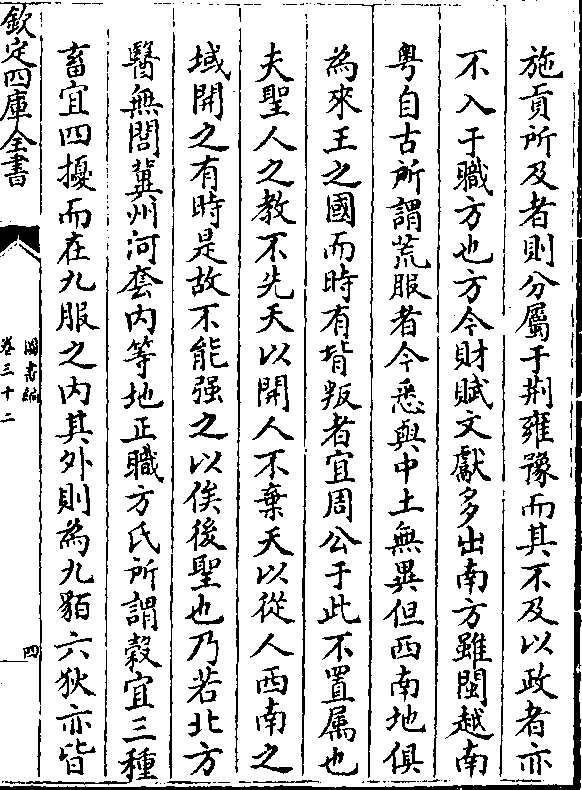 施貢所及者則分屬于荆雍豫而其不及以政者亦
不入于職方也方今財賦文獻多出南方雖閩越南
粤自古所謂荒服者今悉與中土無異但西南地俱
為來王之國而時有背叛者宜周公于此不置属也
夫聖人之教不先天以開人不棄天以從人西南之
域開之有時是故不能强之以俟後聖也乃若北方
醫無閭冀州河套内等地正職方氏所謂穀宜三種
畜宜四擾而在九服之内其外則為九貊六狄亦皆
欽定四庫全書
圖書編
卷三十二
四